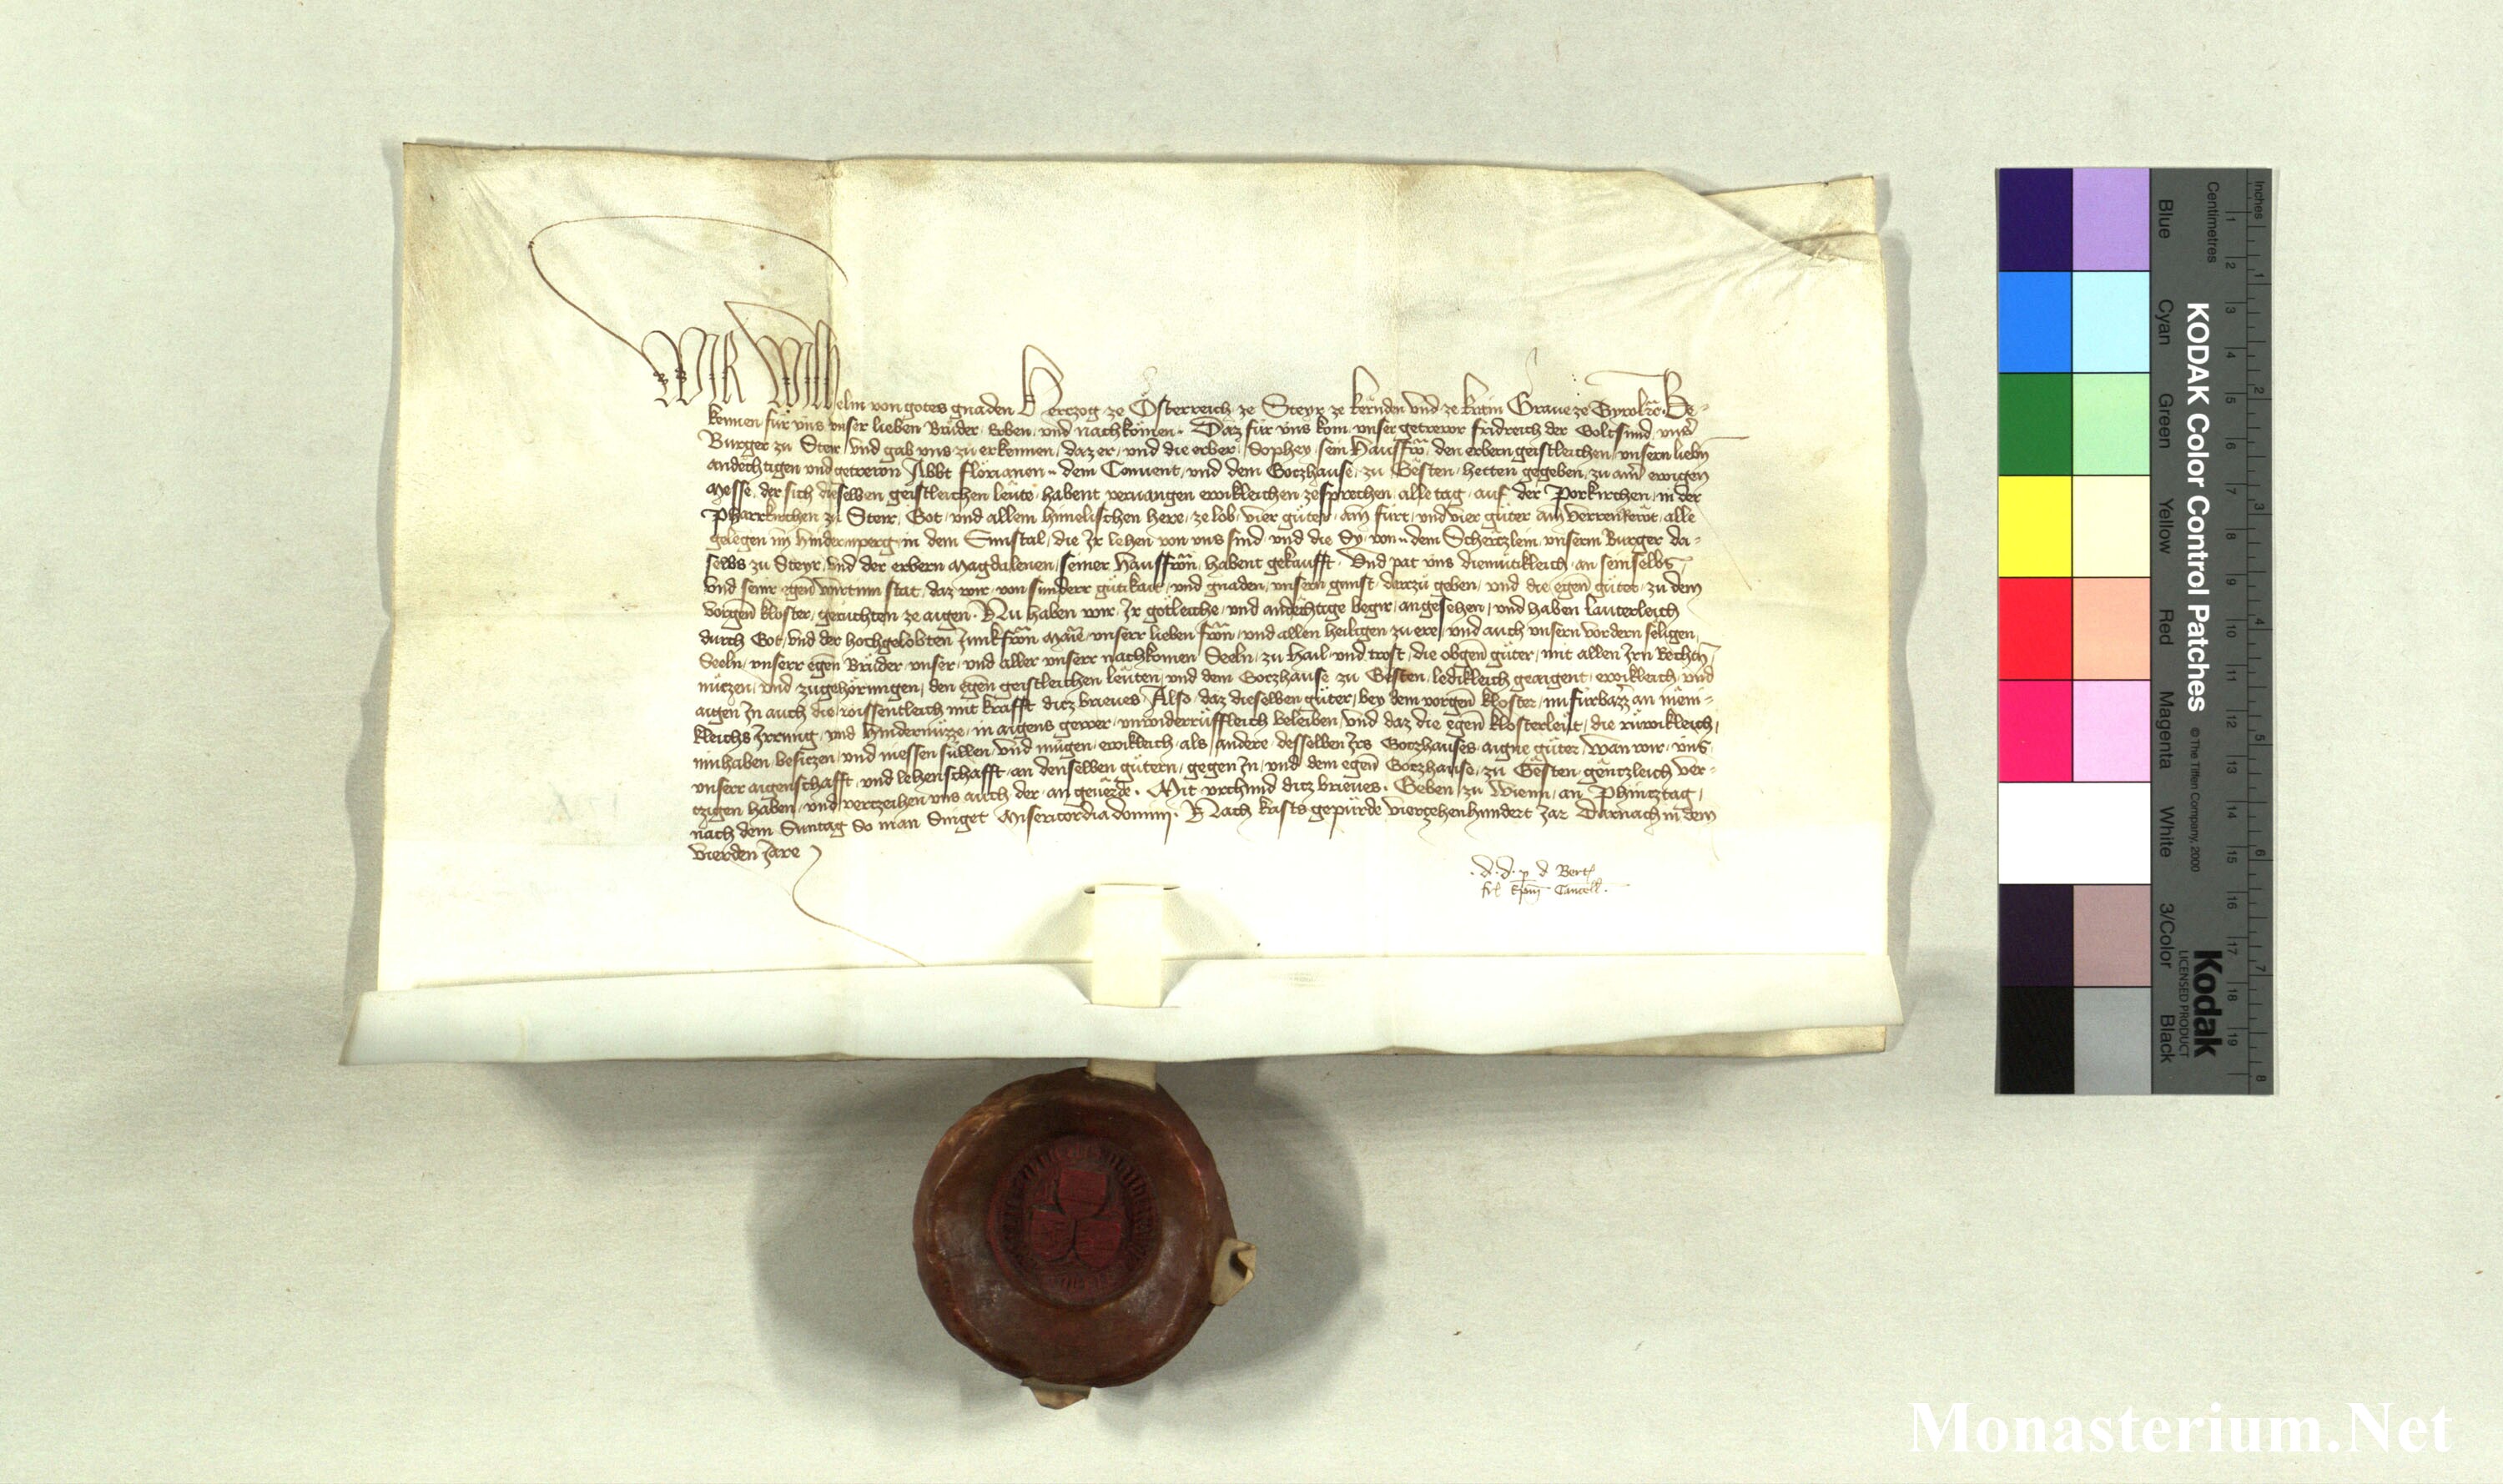 WIR Wilhelm von gotes gnaden Herczog ze Österreich ze Steyr ze kernden vnd ze krain Graue ze Tyrol ꝛc. Be-
kennen für vns vnser lieben Brüder Erben vnd nachkomen. Daz für vns kom vnser getrewr fridreich der Goltsmid vnser
Burger zu Steir vnd gab vns zu erkennen, daz er, vnd die erber Sophey sein Hausfrow, den erbern geistleichen vnsern liebn
andechtigen vnd getrewn Abbt florianen dem Conuent, vnd dem Goczhause, zu Gersten, hetten gegeben, zu ainer ewigen
Messe, der sich dieselben geistleichen leute, habent veruangen ewikleichen ze sprechen alle tag, auf der Porkirchen, in der
Pharrkirchen zu Steir, Got vnd allem himelischen here, ze lob vier güter, am fürt, vnd vier güter am verren, alle
gelegen im hindernperg in dem Ennstal, die Ir lehen von vns sind vnd die Sy von dem Scherczlein vnserm Burger da-
selbs zu Steyr, vnd der erbern Magdalenen, seiner hausfrown, habent gekaufft. Vnd pat vns diemütikleich an sein selbs,
vnd seinr egen wirtinn stat, daz wir von sunderr gütikait, vnd gnaden, vnsern gunst darczu geben, vnd die egen güter zu dem
vorgen kloster, geruchten ze aigen. Nu haben wir Ir gotleiche, vnd andechtige begir, angesehen, vnd haben lauterleich
durch Got, vnd der hochgelobten Junkfrown Marie vnserr lieben frown vnd allen heiligen zu ere, vnd auch vnsern vordern seligen,
Seeln, vnserr egen Brüder vnser, vnd aller vnserr nachkomen Seeln, zu hail vnd trost, die obgen güter, mit allen Irn Rechtn,
nüczen, vnd zugehörungen, den egen geistleichen leuten, vnd dem Goczhause zu Gersten, ledikleich geaigent, ewikleich, vnd
aigen In auch die, wissentleich mit krafft dicz brieues. Also daz dieselben güter, bey dem vorgen kloster, nu fürbazz an meni-
kleichs Irrung, vnd hindernüzze, in aigens gewer, vnwiderrüffleich beleiben, vnd daz die egen klosterleut, die rüwikleich,
innhaben, besiczen, vnd niessen süllen vnd mügen ewikleich als andere desselben Irs Goczhauses aigne güter, wan wir vns
vnserr aigenschafft, vnd lehenschafft an denselben gütern, gegen In, vnd dem egen Goczhause, zu Gersten genczleich ver-
czigen haben, vnd verczeihen vns auch der, an geuerde. Mit vrchund dicz brieues. Geben zu Wienn, an Phincztag,
nach dem Suntag So man Singet Misericordia domini. Nach krists gepürde vierczehenhundert Jar Darnach in dem
vierden Jare
.d.d. p d Bert
fr Epm Cancell.
KODAK Color Control Patches © The Tiffen Company, 2000
Kodak
LICENSED PRODUCT
Blue Cyan Green Yellow Red Magenta White 3/Color Black
Inches 1 2 3 4 5 6 7 8
Centimetres 1 2 3 4 5 6 7 8 9 10 11 12 13 14 15 16 17 18 19
Monasterium.Net